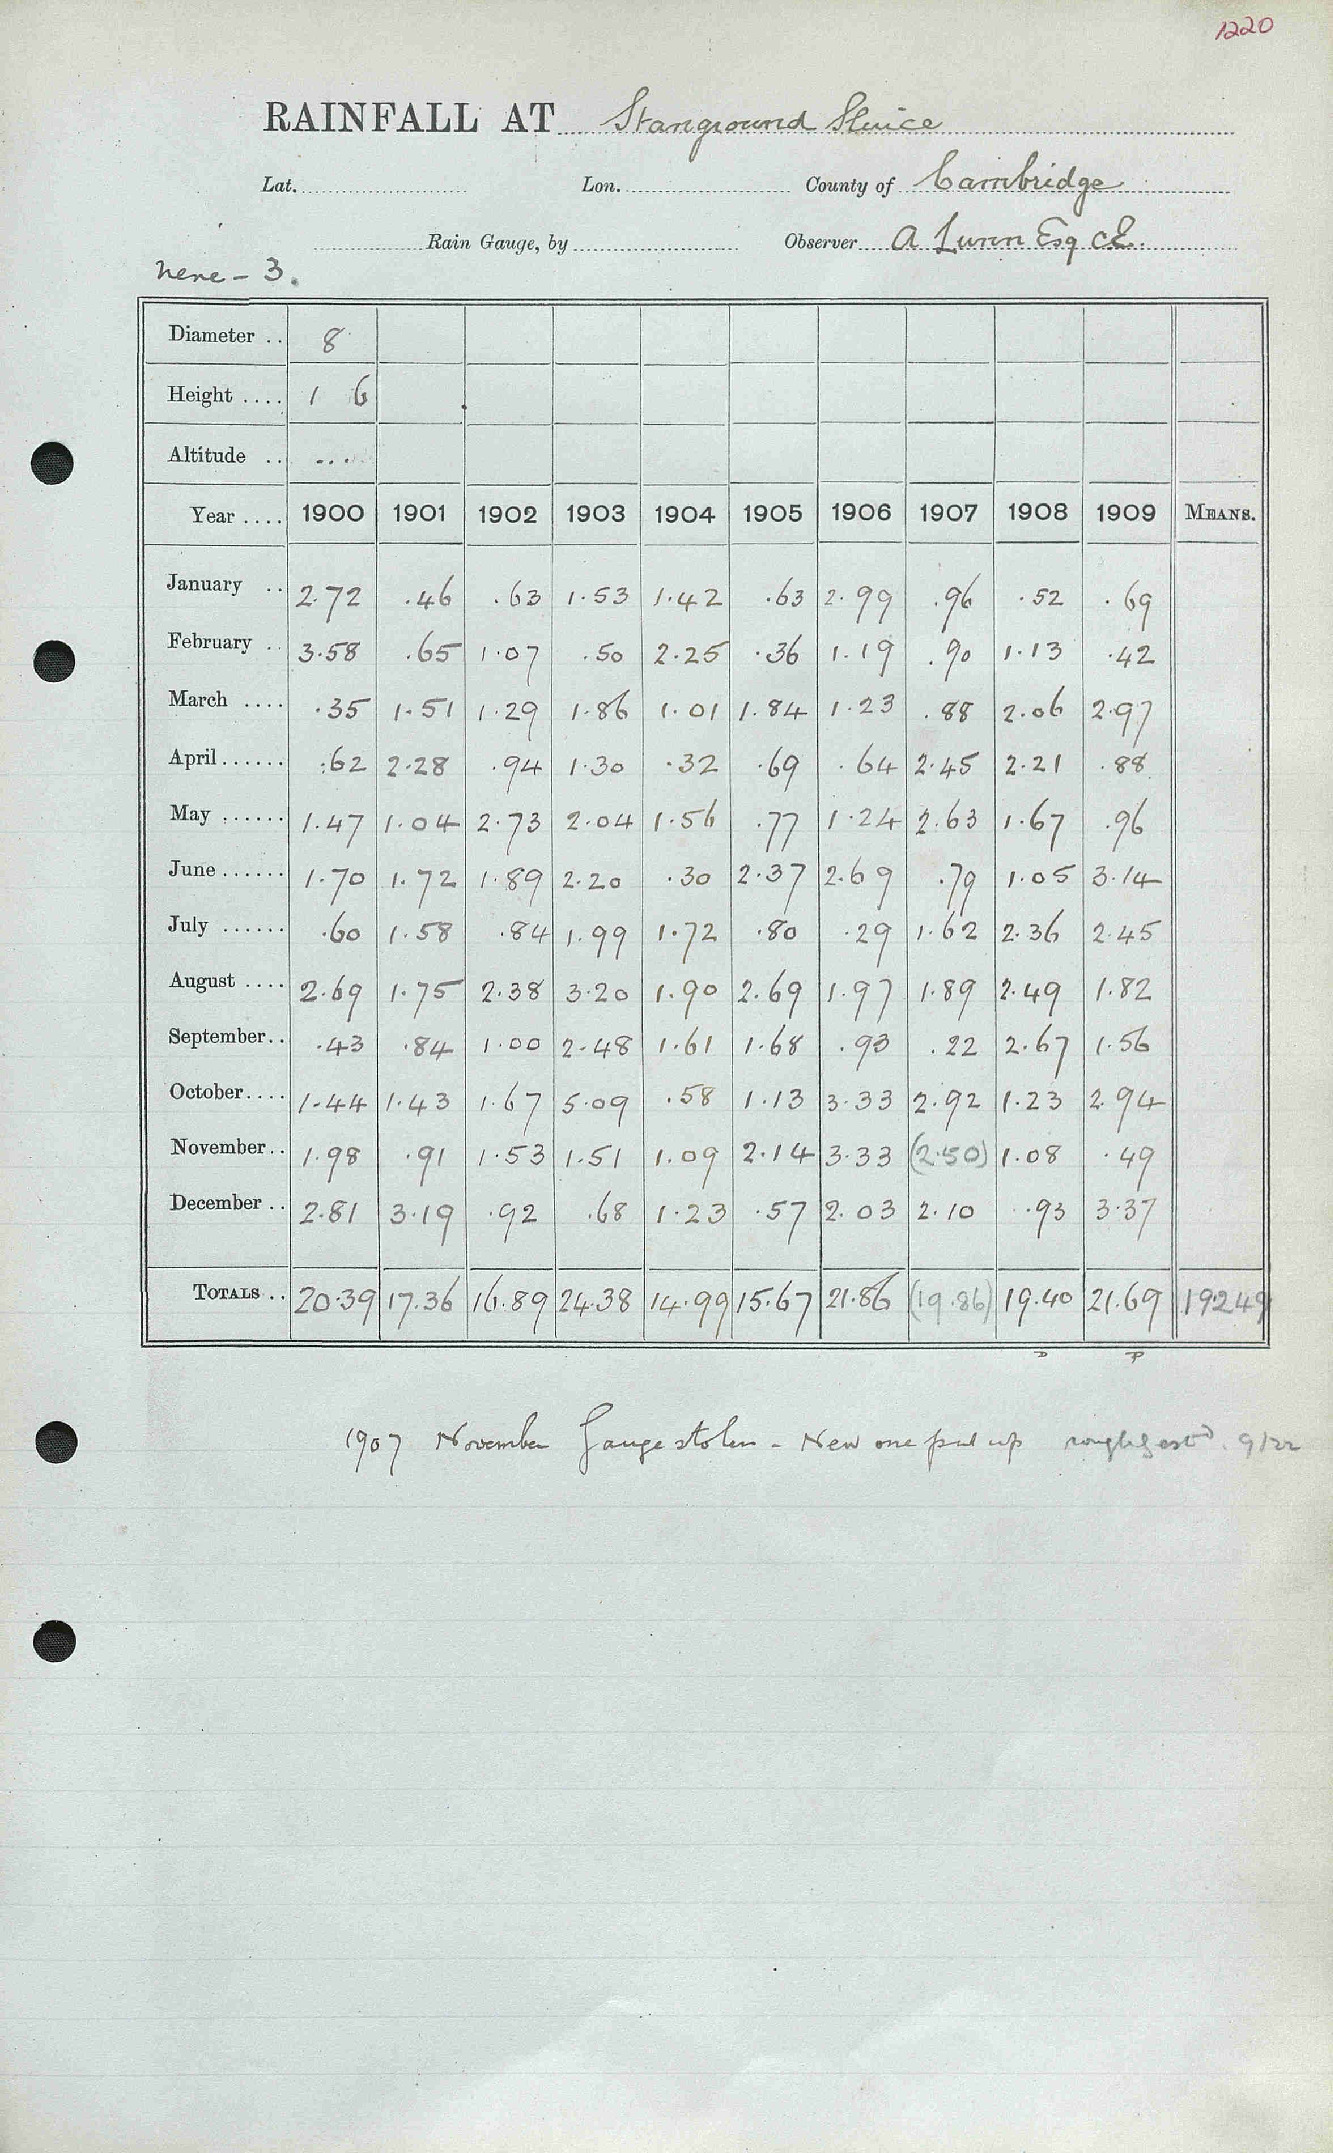 1220
RAINFALL AT Stanground Sluice
Lat. Lon. County of Cambridge
Rain Gauge, by Observer A Lunn Esq CE.
Nene - 3.
Diameter .. 8
Height .... 1 6
Altitude .. ...
Year .... 1900 1901 1902 1903 1904 1905 1906 1907 1908 1909 MEANS.
January .. 2.72 .46 .63 1.53 1.42 .63 2.99 .96 .52 .69
February .. 3.58 .65 1.07 .50 2.25 .36 1.19 .90 1.13 .42
March .... .35 1.51 1.29 1.86 1.01 1.84 1.23 .88 2.06 2.97
April ...... .62 2.28 .94 1.30 .32 .69 .64 2.45 2.21 .88
May ...... 1.47 1.04 2.73 2.04 1.56 .77 1.24 2.63 1.67 .96
June ...... 1.70 1.72 1.89 2.20 .30 2.37 2.69 .79 1.05 3.14
July ...... .60 1.58 .84 1.99 1.72 .80 .29 1.62 2.36 2.45
August .... 2.69 1.75 2.38 3.20 1.90 2.69 1.97 1.89 2.49 1.82
September.. .43 .84 1.00 2.48 1.61 1.68 .93 .22 2.67 1.56
October.... 1.44 1.43 1.67 5.09 .58 1.13 3.33 2.92 1.23 2.94
November.. 1.98 .91 1.53 1.51 1.09 2.14 3.33 (2.50) 1.08 .49
December .. 2.81 3.19 .92 .68 1.23 .57 2.03 2.10 .93 3.37
TOTALS .. 20.39 17.36 16.89 24.38 14.99 15.67 21.86 (19.86) 19.40 21.69 192.49
1907 November Gauge stolen - New one put up roughly estd.